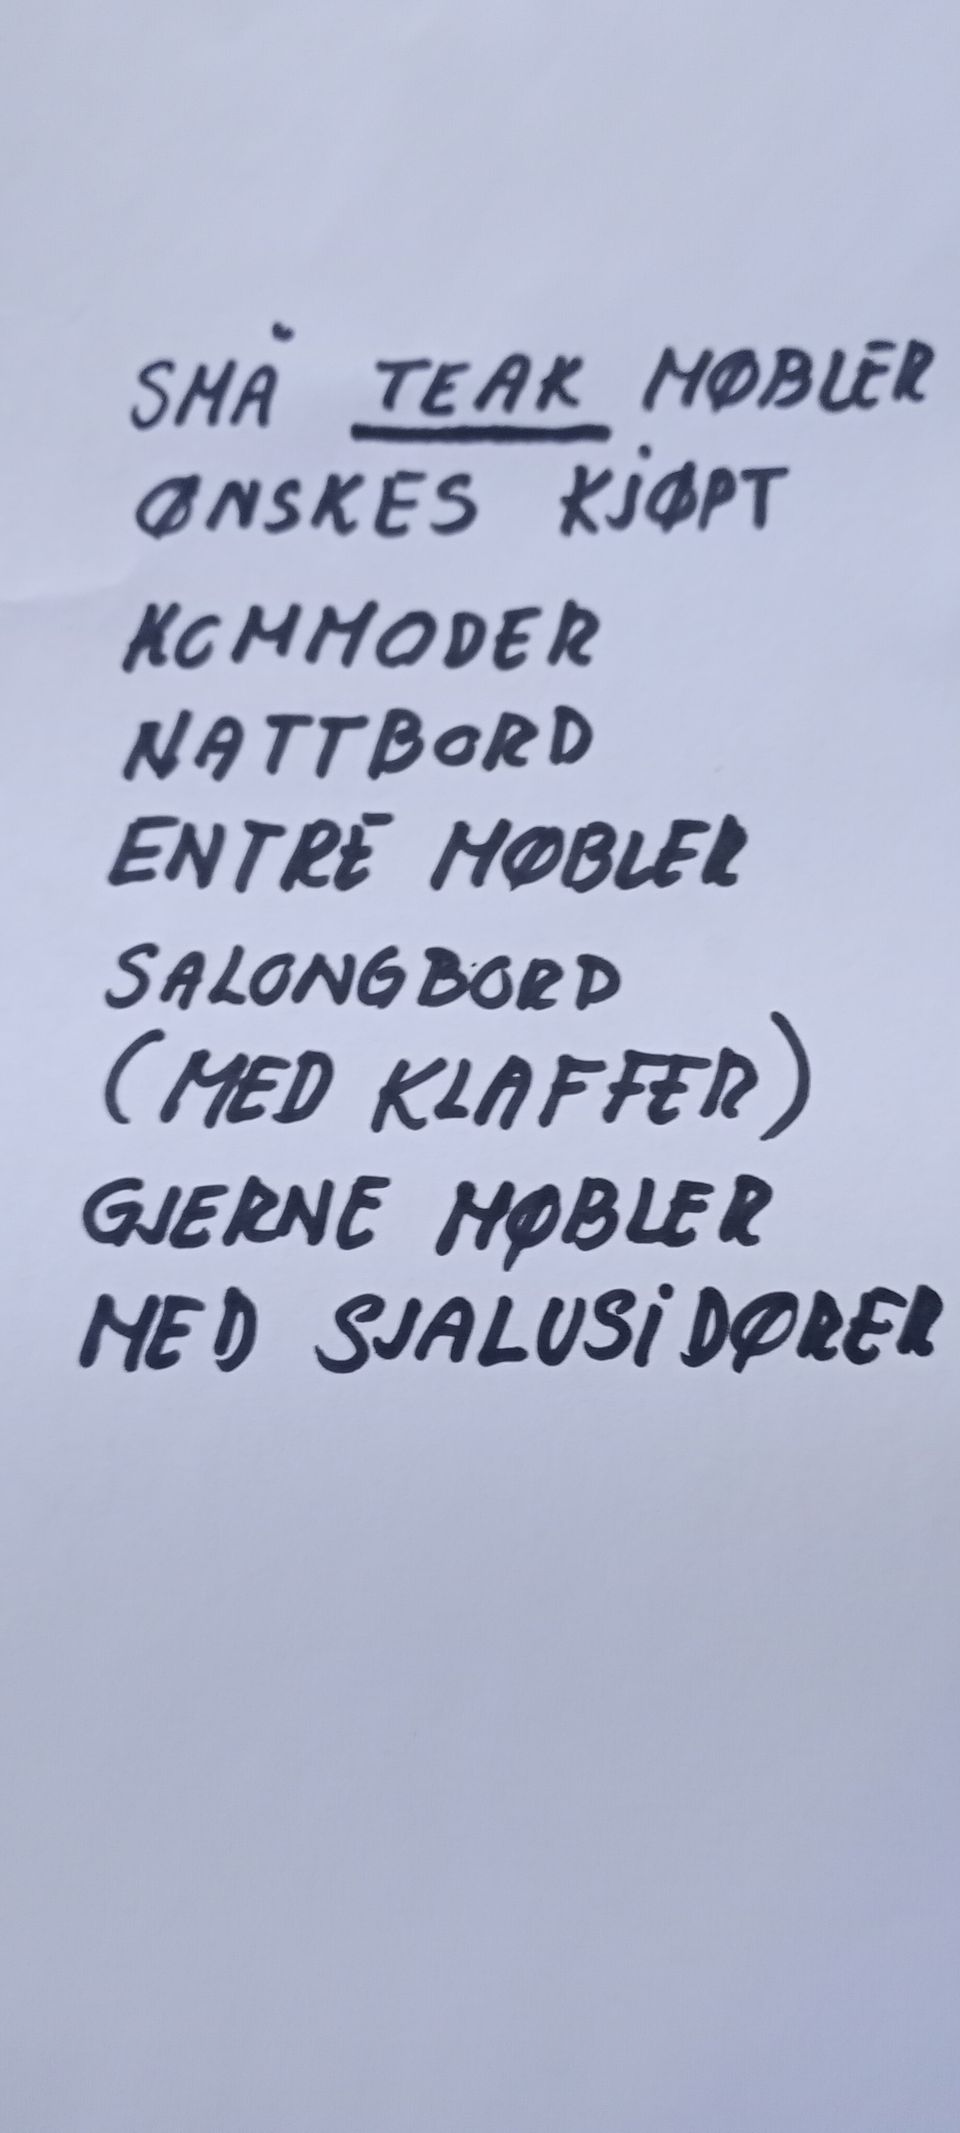 SMÅ TEAK MØBLER
ØNSKES KJØPT
KOMMODER
NATTBORD
ENTRÉ MØBLER
SALONGBORD
(MED KLAFFER)
GJERNE MØBLER
MED SJALUSIDØRER